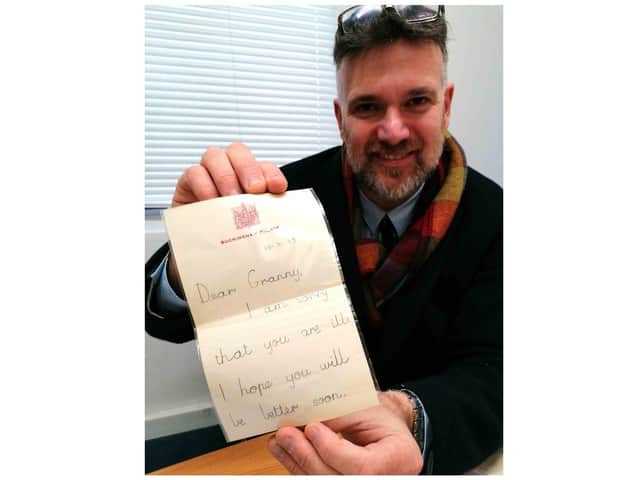 BUCKINGHAM PALACE
Dear Granny,
I am sorry
that you are ill.
I hope you will
be better soon.